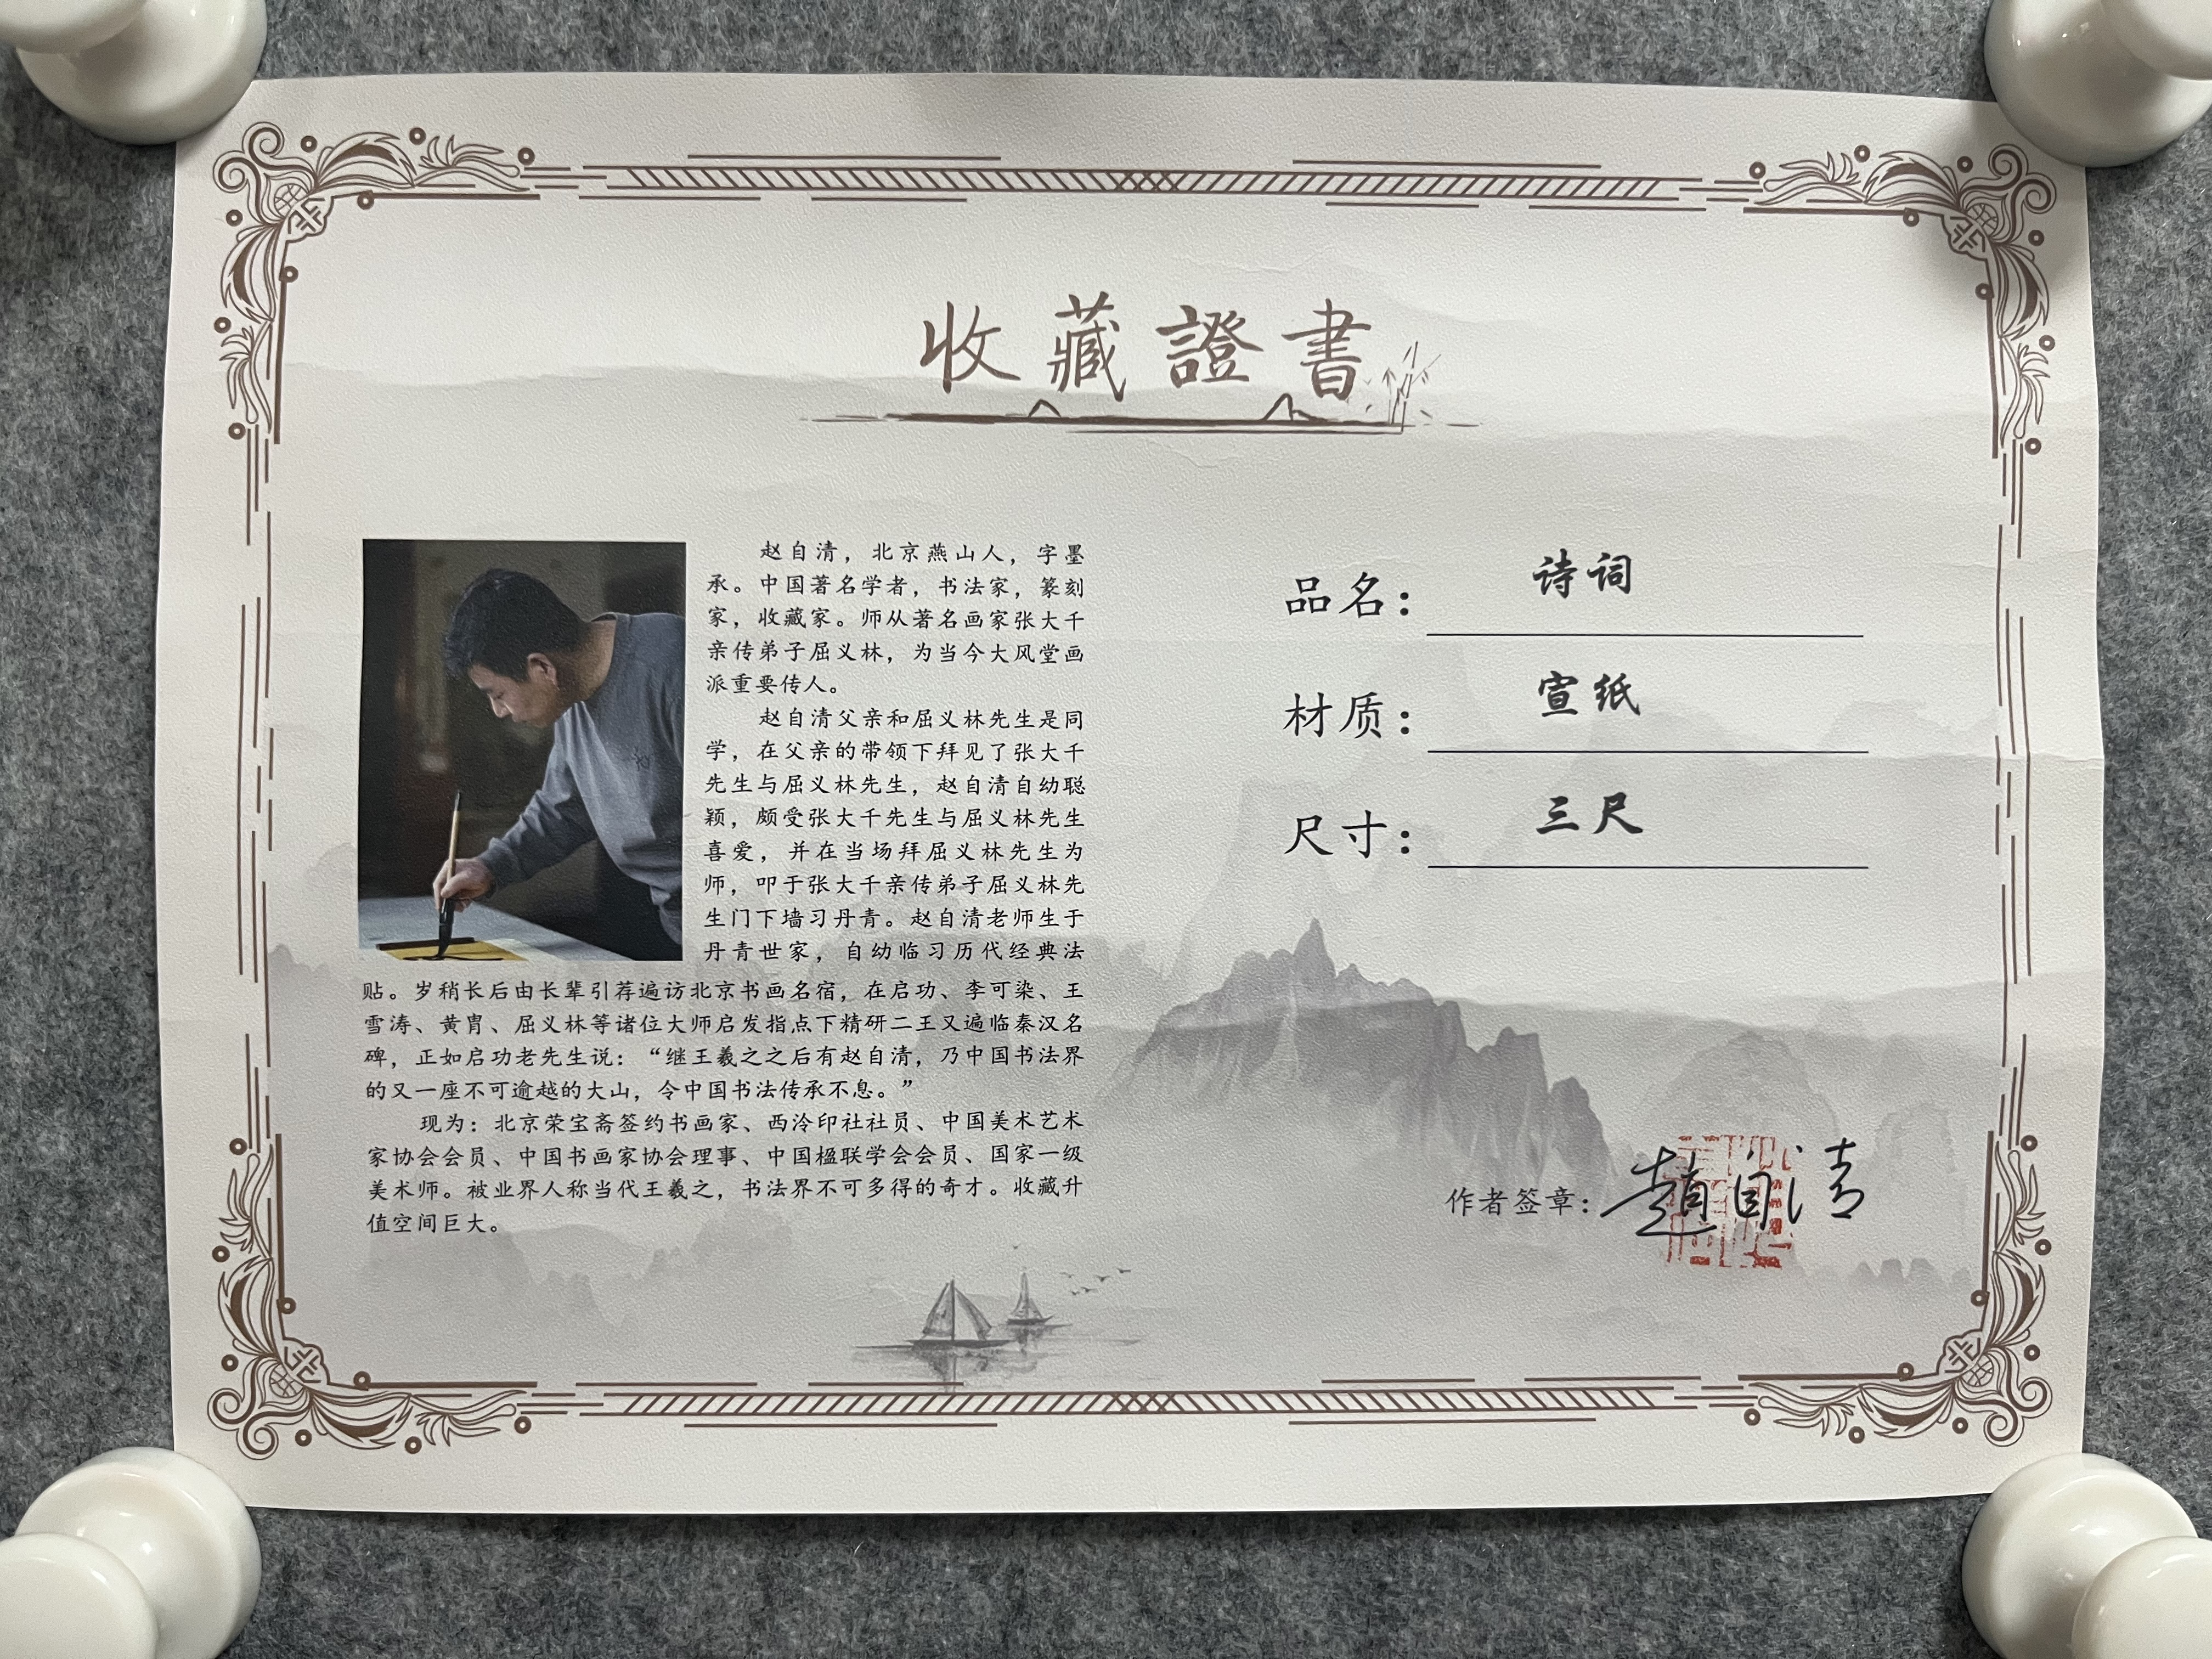 收藏證書
赵自清，北京燕山人，字墨
承。中国著名学者，书法家，篆刻
家，收藏家。师从著名画家张大千
亲传弟子屈义林，为当今大风堂画
派重要传人。
赵自清父亲和屈义林先生是同
学，在父亲的带领下拜见了张大千
先生与屈义林先生，赵自清自幼聪
颖，颇受张大千先生与屈义林先生
喜爱，并在当场拜屈义林先生为
师，叩于张大千亲传弟子屈义林先
生门下墙习丹青。赵自清老师生于
丹青世家，自幼临习历代经典法
贴。岁稍长后由长辈引荐遍访北京书画名宿，在启功、李可染、王
雪涛、黄胄、屈义林等诸位大师启发指点下精研二王又遍临秦汉名
碑，正如启功老先生说：“继王羲之之后有赵自清，乃中国书法界
的又一座不可逾越的大山，令中国书法传承不息。”
现为：北京荣宝斋签约书画家、西泠印社社员、中国美术艺术
家协会会员、中国书画家协会理事、中国楹联学会会员、国家一级
美术师。被业界人称当代王羲之，书法界不可多得的奇才。收藏升
值空间巨大。
品名：诗词
材质：宣纸
尺寸：三尺
作者签章：趙自清